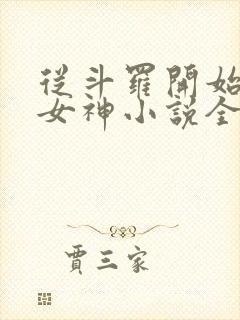 從斗羅開始
女神小說全
賈三家